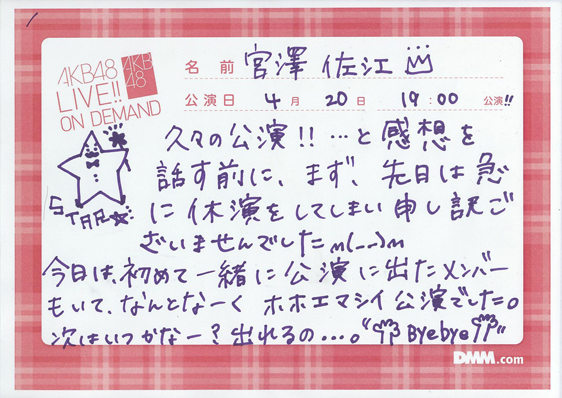 AKB48
LIVE!!
ON DEMAND
AKB
48
名前 宮澤 佐江
公演日 4月 20日 19:00 公演!!
久々の公演!! …と感想を
話す前に、まず、先日は急
に休演をしてしまい申し訳ご
ざいませんでしたm(__)m
STAR
今日は、初めて一緒に公演に出たメンバー
もいて、なんとなーくホホエマシイ公演でした。
次はいつかなー?出れるの…。"Byebye"
DMM.com